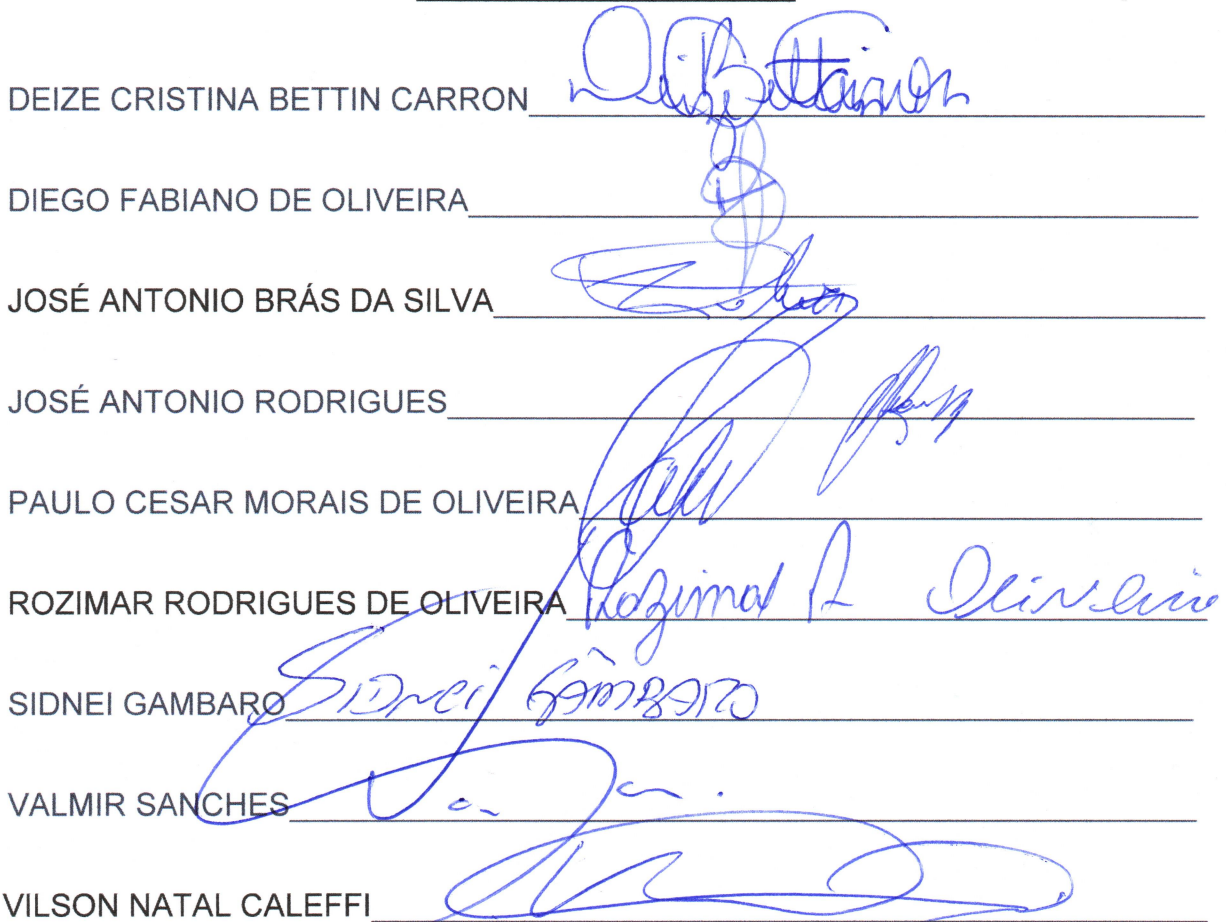 DEIZE CRISTINA BETTIN CARRON
DIEGO FABIANO DE OLIVEIRA
JOSÉ ANTONIO BRÁS DA SILVA
JOSÉ ANTONIO RODRIGUES
PAULO CESAR MORAIS DE OLIVEIRA
ROZIMAR RODRIGUES DE OLIVEIRA Rozimar R Oliveira
SIDNEI GAMBARO SIDNEI GAMBARO
VALMIR SANCHES
VILSON NATAL CALEFFI